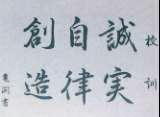 校訓
誠実
自律
創造